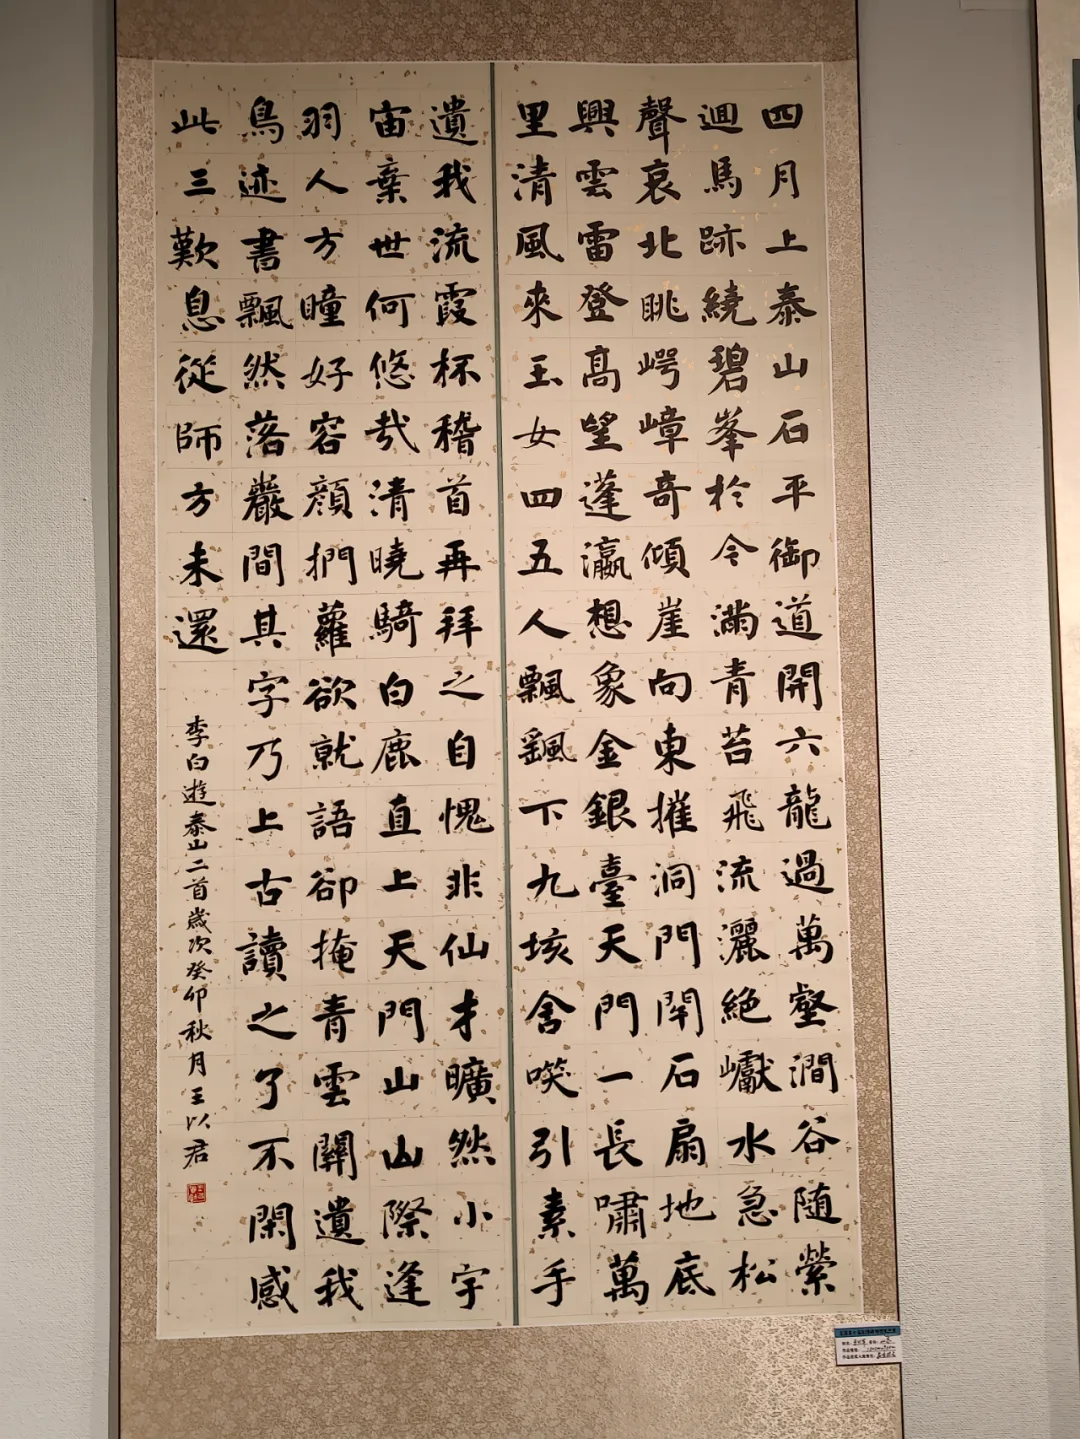 四月上泰山石平御道開六龍過萬壑澗谷隨縈
迴馬跡繞碧峯於今滿青苔飛流灑絕巘水急松
聲哀北眺崿嶂奇傾崖向東摧洞門閉石扇地底
興雲雷登高望蓬瀛想象金銀臺天門一長嘯萬
里清風來玉女四五人飄颻下九垓含笑引素手
遺我流霞杯稽首再拜之自愧非仙才曠然小宇
宙棄世何悠哉清曉騎白鹿直上天門山山際逢
羽人方瞳好容顏捫蘿欲就語卻掩青雲關遺我
鳥迹書飄然落巖間其字乃上古讀之了不閑感
此三歎息從師方未還
李白遊泰山二首歲次癸卯秋月王以君